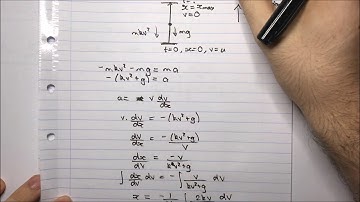 x = xmax
v=0
mkv² mg
t=0, x=0, v=u
-mkv² - mg = ma
-(kv²+g) = a
a = v dv/dx
v. dv/dx = -(kv²+g)
dv/dx = -(kv²+g)/v
dx/dv = -v/(kv²+g)
∫ dx/dv dv = -∫ v/(kv²+g) dv
x = -1 ∫ 2kv dv